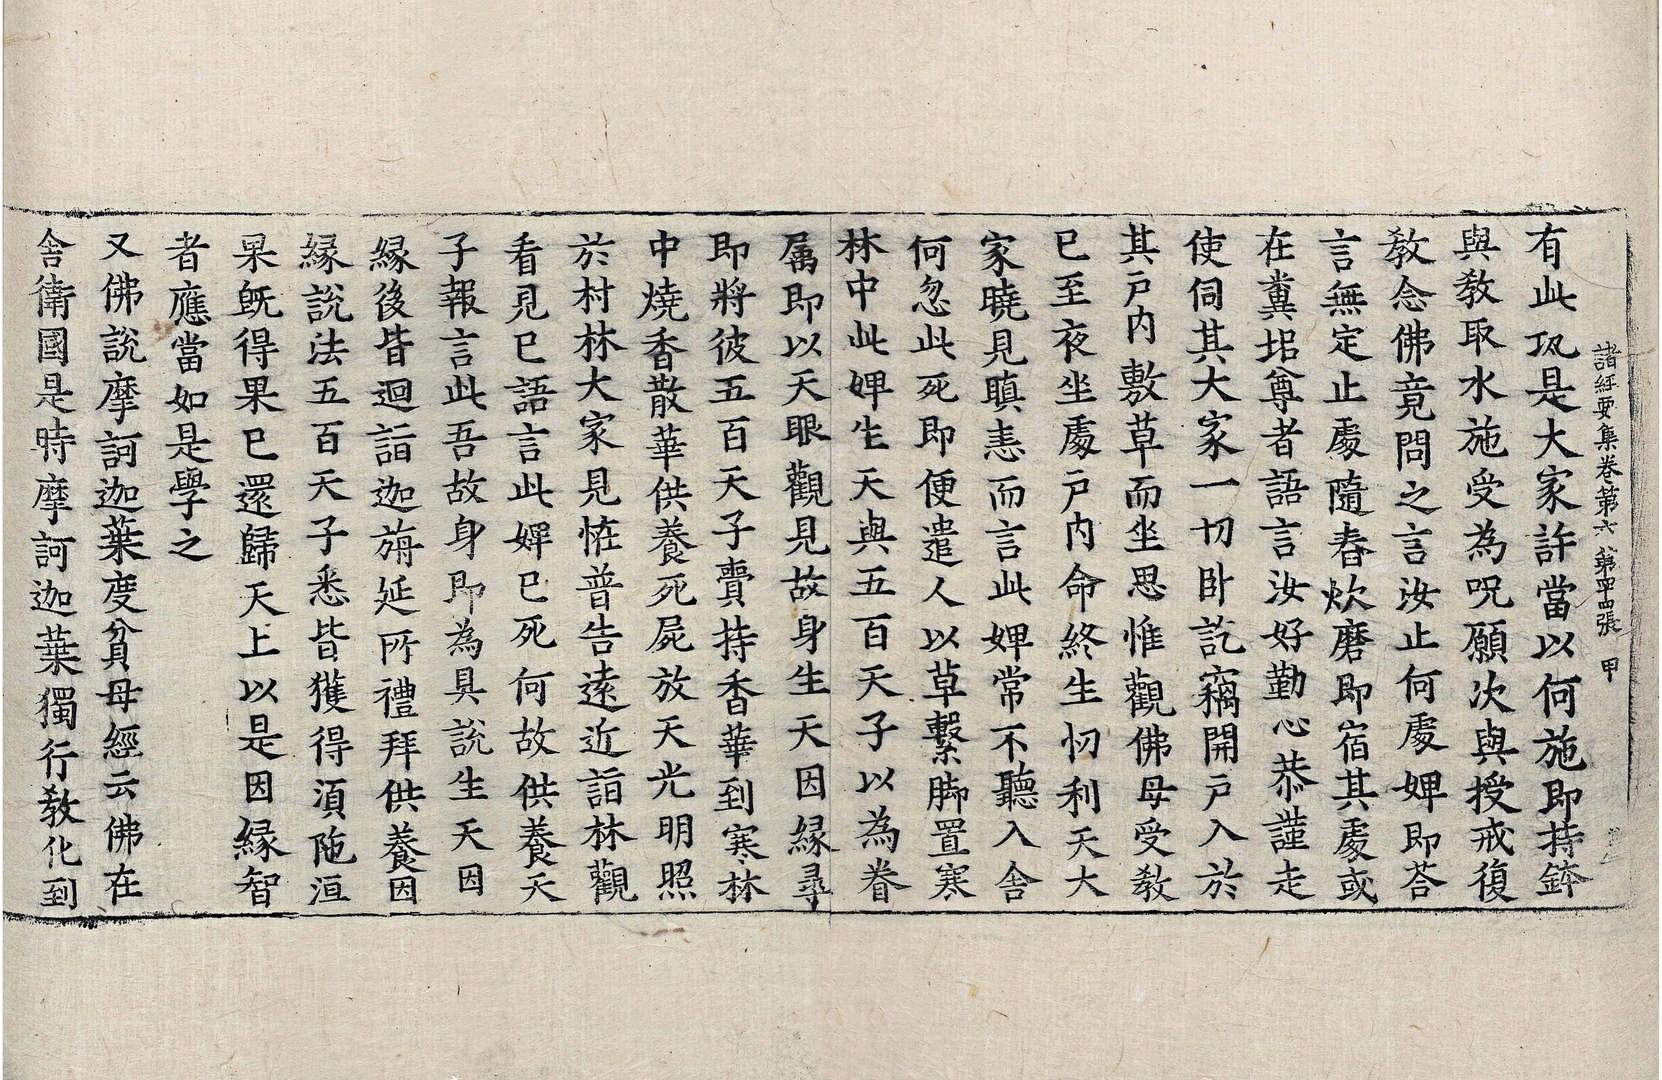 諸經要集卷第六　第四十四張　甲
有此瓨是大家許當以何施即持鉢
與敎取水施受為呪願次與授戒復
敎念佛竟問之言汝止何處婢即荅
言無定止處隨舂炊磨即宿其處或
在糞𡊅尊者語言汝好勤心恭謹走
使伺其大家一切卧訖竊開户入於
其户內敷草而坐思惟觀佛母受敎
已至夜坐處户內命終生忉利天大
家曉見瞋恚而言此婢常不聽入舍
何忽此死即便遣人以草繫脚置寒
林中此婢生天與五百天子以為眷
属即以天眼觀見故身生天因緣尋
即將彼五百天子賷持香華到寒林
中燒香散華供養死屍放天光明照
於村林大家見恠普告遠近詣林觀
看見已語言此婢已死何故供養天
子報言此吾故身即為具說生天因
緣後皆迴詣迦旃延所禮拜供養因
緣說法五百天子悉皆獲得湏陁洹
果旣得果已還歸天上以是因緣智
者應當如是學之
又佛說摩訶迦葉度貧母經云佛在
舍衛國是時摩訶迦葉獨行敎化到